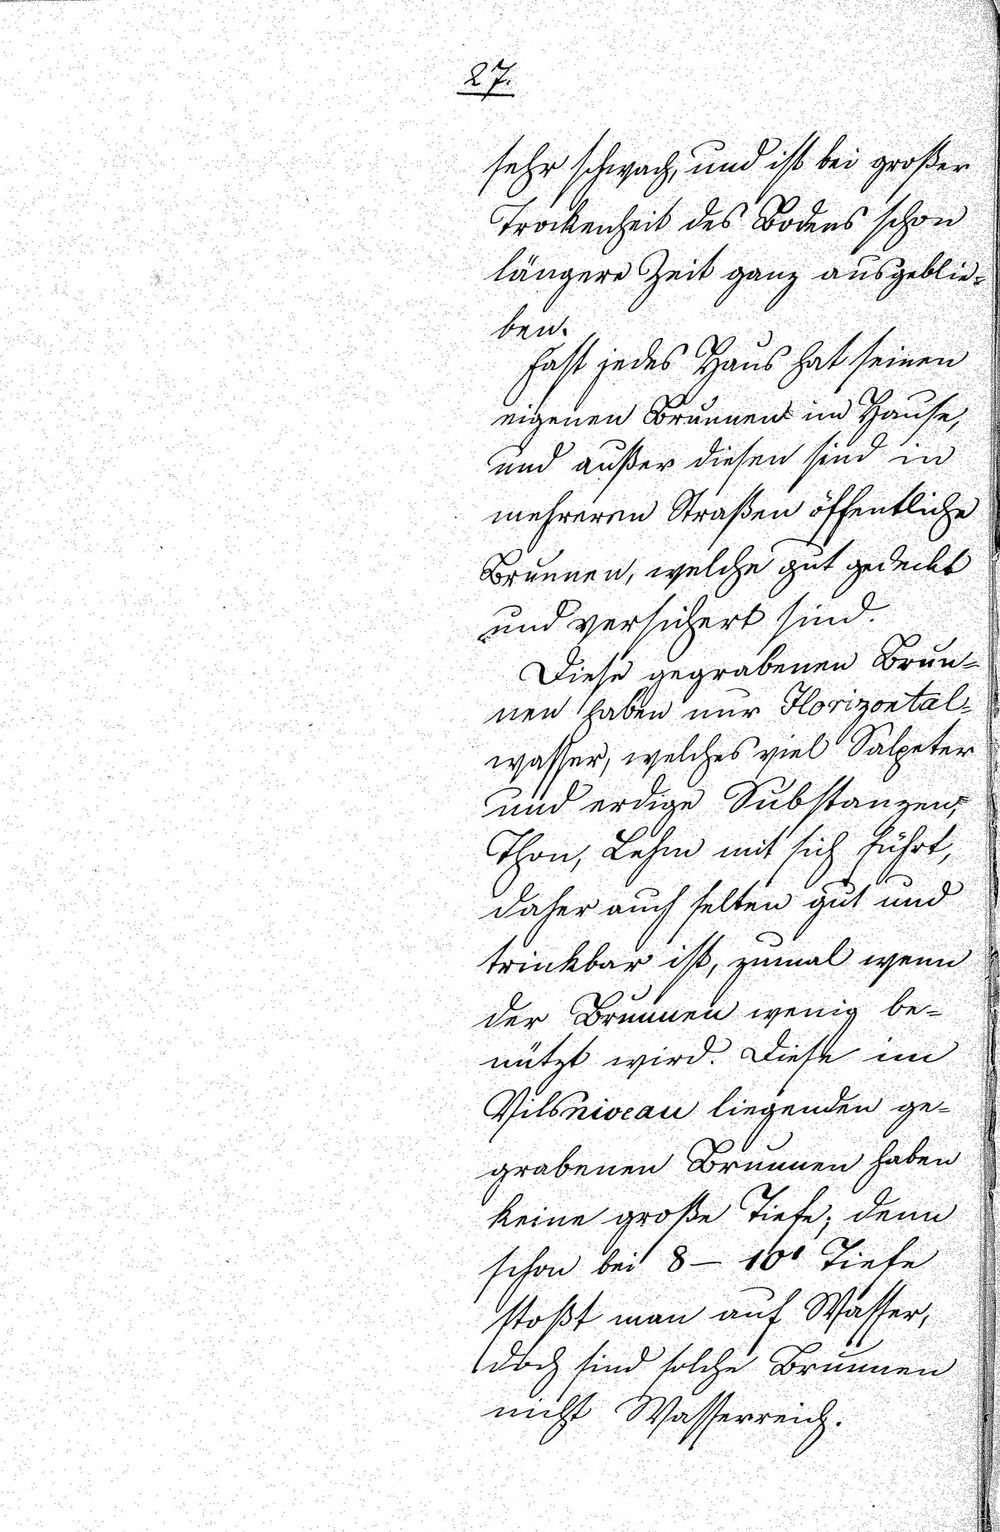 27.
sehr schwach, und ist bei großer
Trockenheit des Bodens schon
längere Zeit ganz ausgeblie-
ben.
Fast jedes Haus hat seinen
eigenen Brunnen im Hause,
und außer diesen sind in
mehreren Straßen öffentliche
Brunnen, welche gut gedeckt
und versichert sind.
Diese gegrabenen Brun-
nen haben nur Horizontal-
wasser, welches viel Salpeter
und erdige Substanzen,
Thon, Lehm mit sich führt,
daher auch selten gut und
trinkbar ist, zumal wenn
der Brunnen wenig be-
nützt wird. Diese im
Vilsniveau liegenden ge-
grabenen Brunnen haben
keine große Tiefe; denn
schon bei 8 – 10' Tiefe
stoßt man auf Wasser,
doch sind solche Brunnen
nicht Wasserreich.